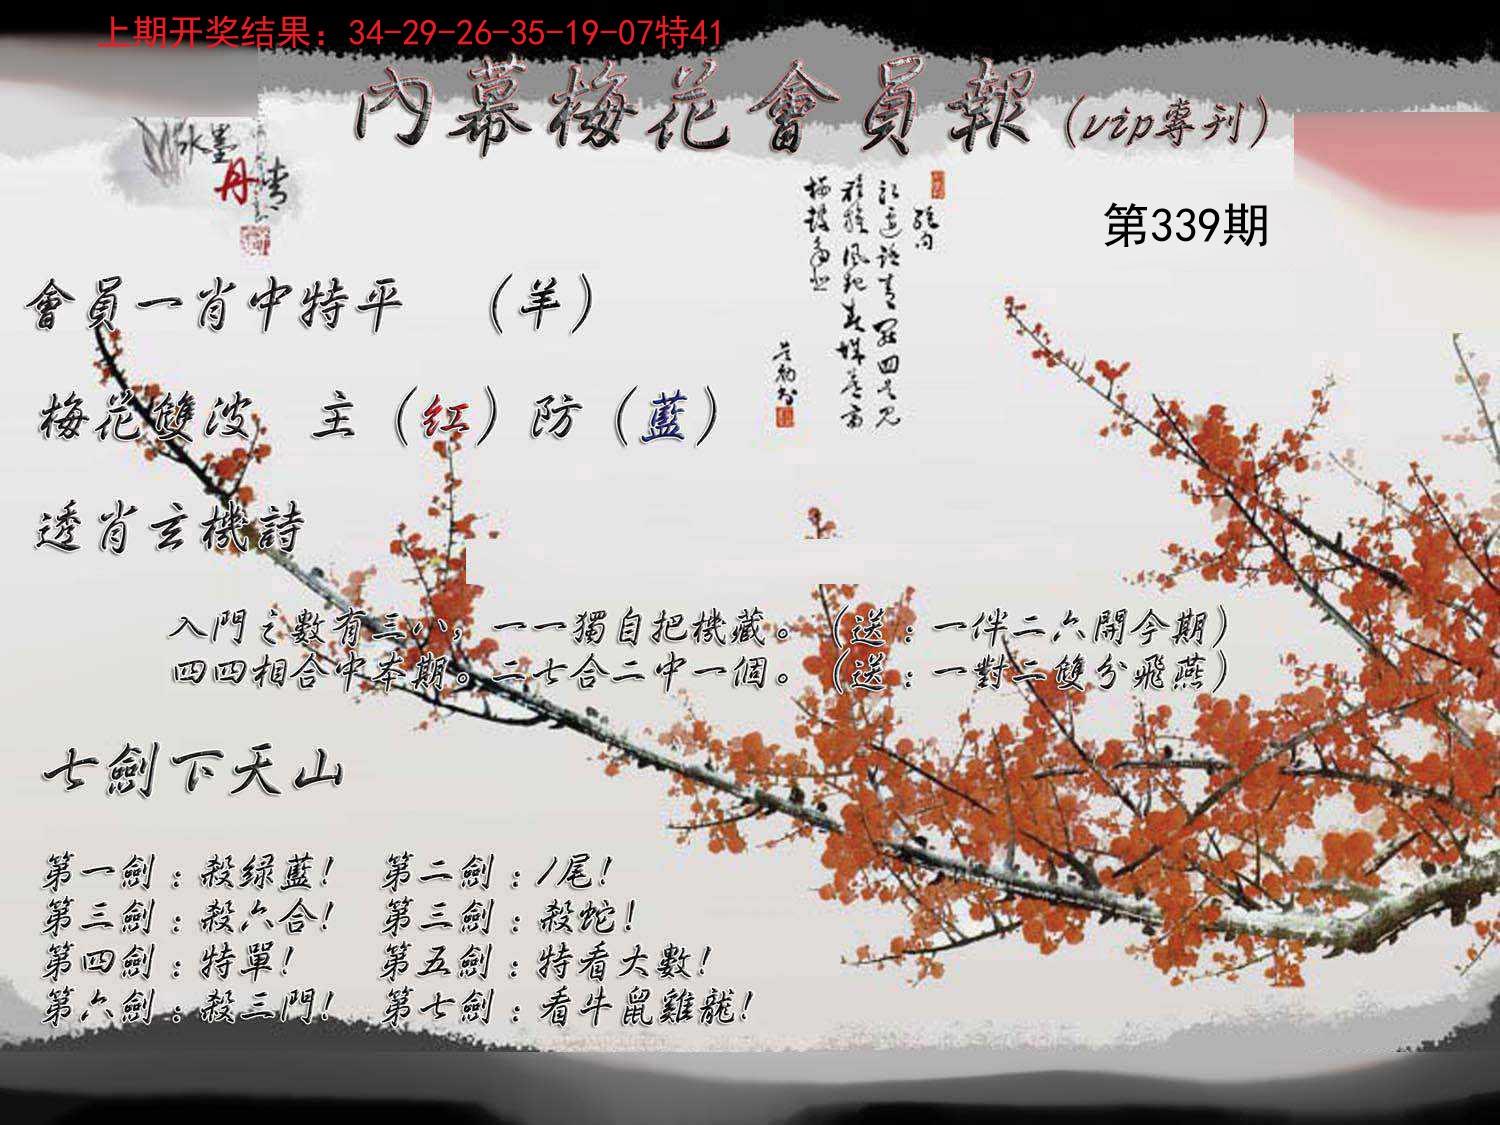 上期开奖结果：34-29-26-35-19-07特41
內幕梅花會員報（vip專刊）
水墨
丹青
第339期
會員一肖中特平 （羊）
梅花雙波 主（紅）防（藍）
透肖玄機詩
入門之數有三八，一一獨自把機藏。（送：一伴二六開今期）
四四相合中本期。二七合二中一個。（送：一對二雙分飛燕）
七劍下天山
第一劍：殺绿藍！ 第二劍：/尾！
第三劍：殺六合！ 第三劍：殺蛇！
第四劍：特單！ 第五劍：特看大數！
第六劍：殺三門！ 第七劍：看牛鼠雞龍！